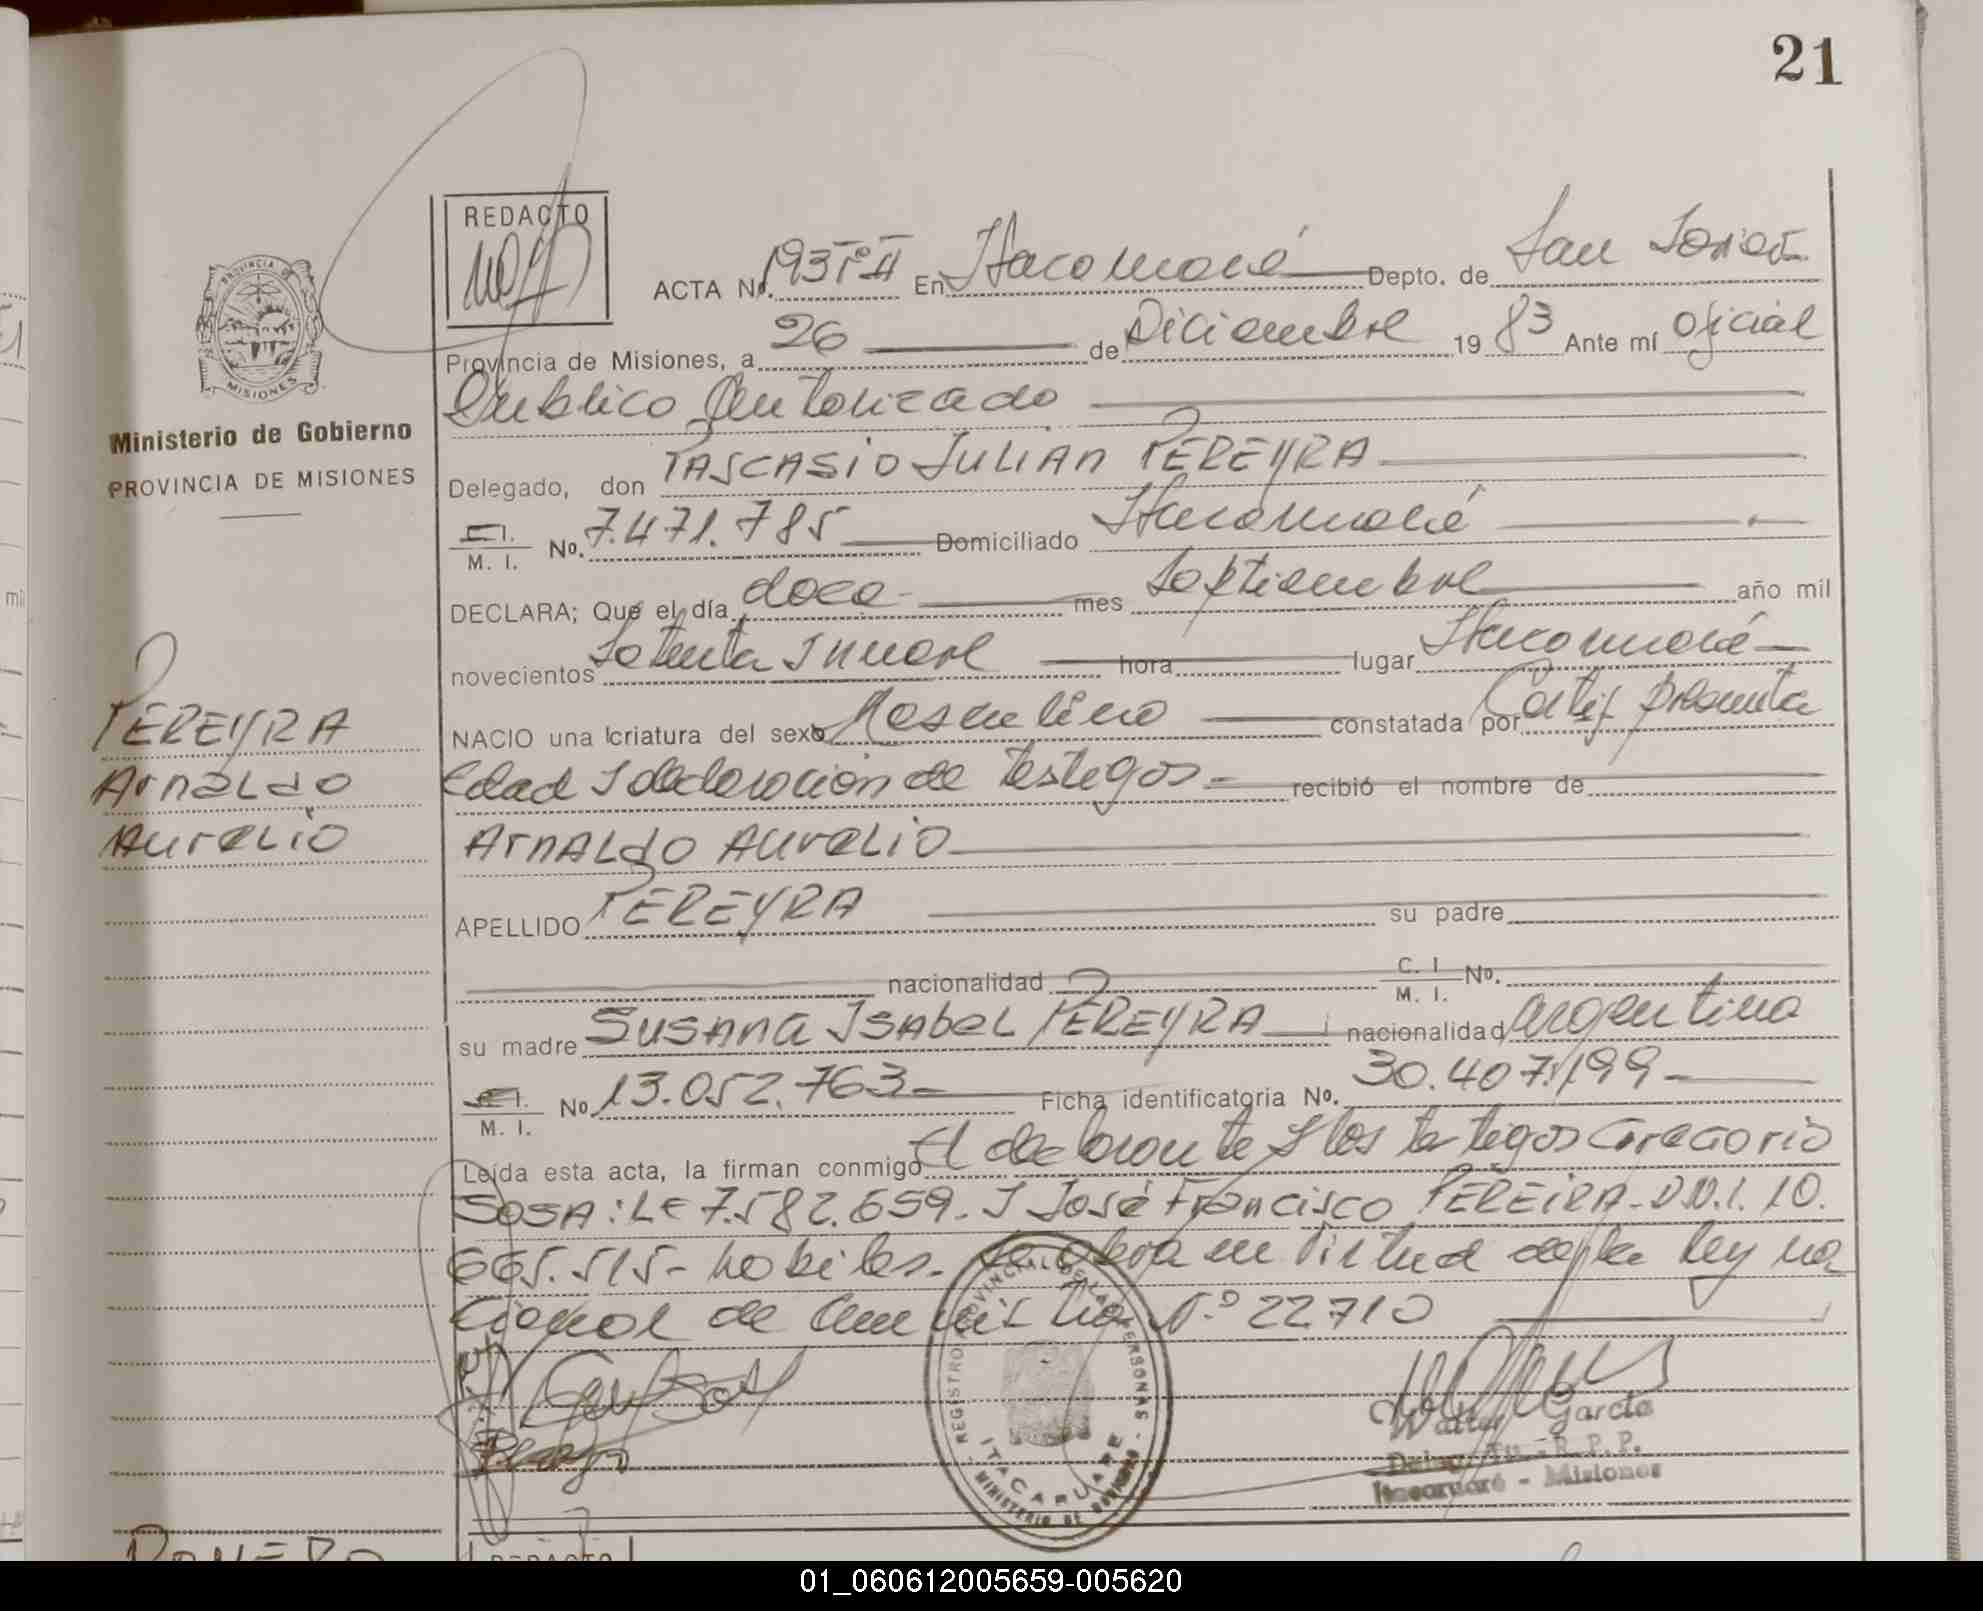 21
REDACTO
ACTA No. 193 Tº II En Itacaruaré Depto. de San Javier
Provincia de Misiones, a 26 de Diciembre 19 83 Ante mí Oficial
Publico Autorizado
Ministerio de Gobierno
PROVINCIA DE MISIONES
Delegado, don PASCASIO JULIAN PEREYRA
C. I. M. I. No. 7.471.785 Domiciliado Itacaruaré
DECLARA; Que el día doce mes Septiembre año mil
novecientos Setenta y nueve hora lugar Itacaruaré
NACIO una criatura del sexo Masculino constatada por Certif presunta
edad y declaración de testigos recibió el nombre de
PEREYRA
Arnaldo
Aurelio
Arnaldo Aurelio
APELLIDO PEREYRA su padre
nacionalidad C. I. M. I. No.
su madre Susana Isabel PEREYRA nacionalidad argentina
C. I. M. I. No 13.052.763 Ficha identificatoria No. 30.407.199
Leída esta acta, la firman conmigo El declarante y los testigos Gregorio
SOSA: LE 7.582.659. y José Francisco PEREIRA - D.N.I. 10.
665.515 - habiles. Se labra en Virtud de la ley na
cional de amnistia N.º 22710
REGISTRO PROVINCIAL DE LAS PERSONAS
ITACARUARE
MINISTERIO DE GOBIERNO
Walter García
Deleg. Tit. - R. P. P.
Itacaruaré - Misiones
ROMERO
REDACTO
01_060612005659-005620